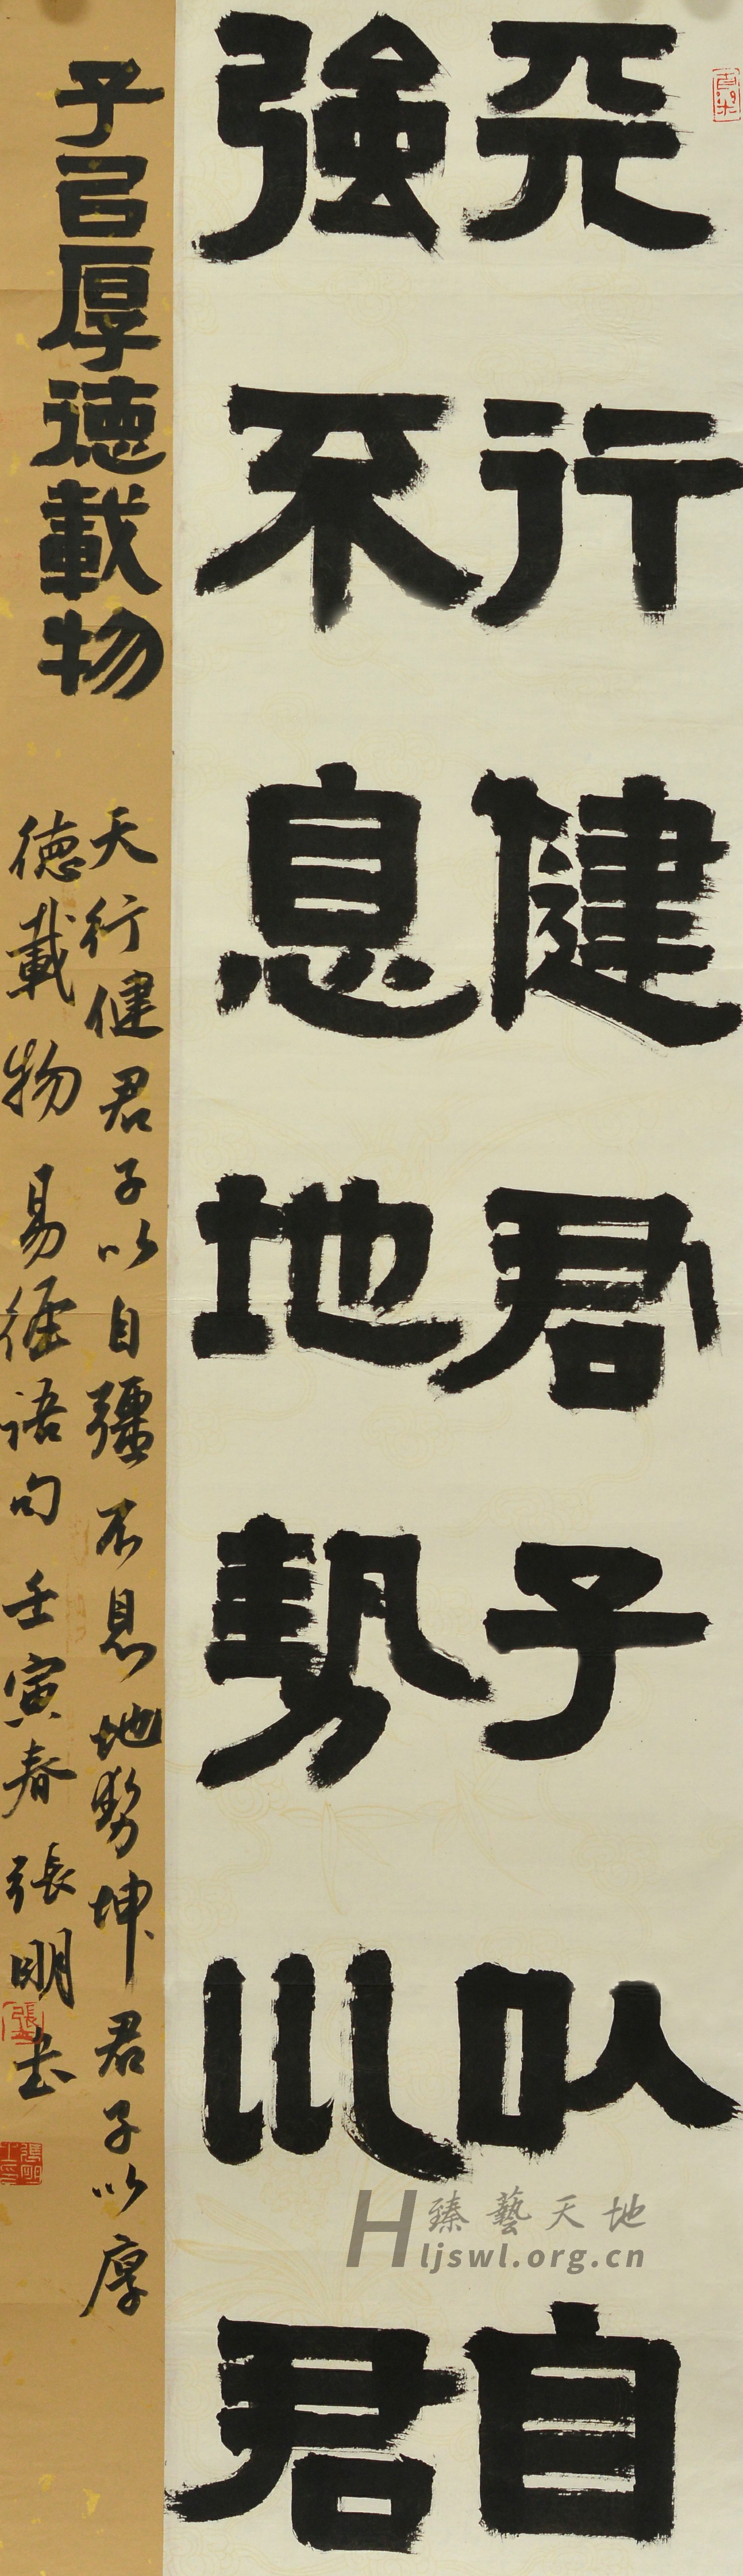 天行健君子以自
強不息地勢川君
子㠯厚德載物
天行健君子以自彊不息地势坤君子以厚
德載物 易經语句 壬寅春 張明书
臻藝天地
Hljswl.org.cn